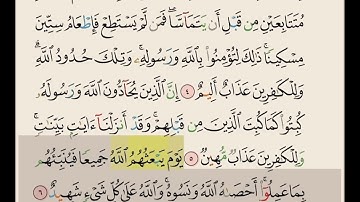 مُتَتَابِعَيْنِ مِن قَبْلِ أَن يَتَمَآسَّا ۖ فَمَن لَّمْ يَسْتَطِعْ فَإِطْعَامُ سِتِّينَ
مِسْكِينًا ۚ ذَٰلِكَ لِتُؤْمِنُوا۟ بِٱللَّهِ وَرَسُولِهِۦ ۚ وَتِلْكَ حُدُودُ ٱللَّهِ ۗ
وَلِلْكَٰفِرِينَ عَذَابٌ أَلِيمٌ ٤ إِنَّ ٱلَّذِينَ يُحَآدُّونَ ٱللَّهَ وَرَسُولَهُۥ
كُبِتُوا۟ كَمَا كُبِتَ ٱلَّذِينَ مِن قَبْلِهِمْ ۚ وَقَدْ أَنزَلْنَآ ءَايَٰتٍۭ بَيِّنَٰتٍ ۚ
وَلِلْكَٰفِرِينَ عَذَابٌ مُّهِينٌ ٥ يَوْمَ يَبْعَثُهُمُ ٱللَّهُ جَمِيعًا فَيُنَبِّئُهُم
بِمَا عَمِلُوٓا۟ ۚ أَحْصَىٰهُ ٱللَّهُ وَنَسُوهُ ۚ وَٱللَّهُ عَلَىٰ كُلِّ شَىْءٍ شَهِيدٌ ٦